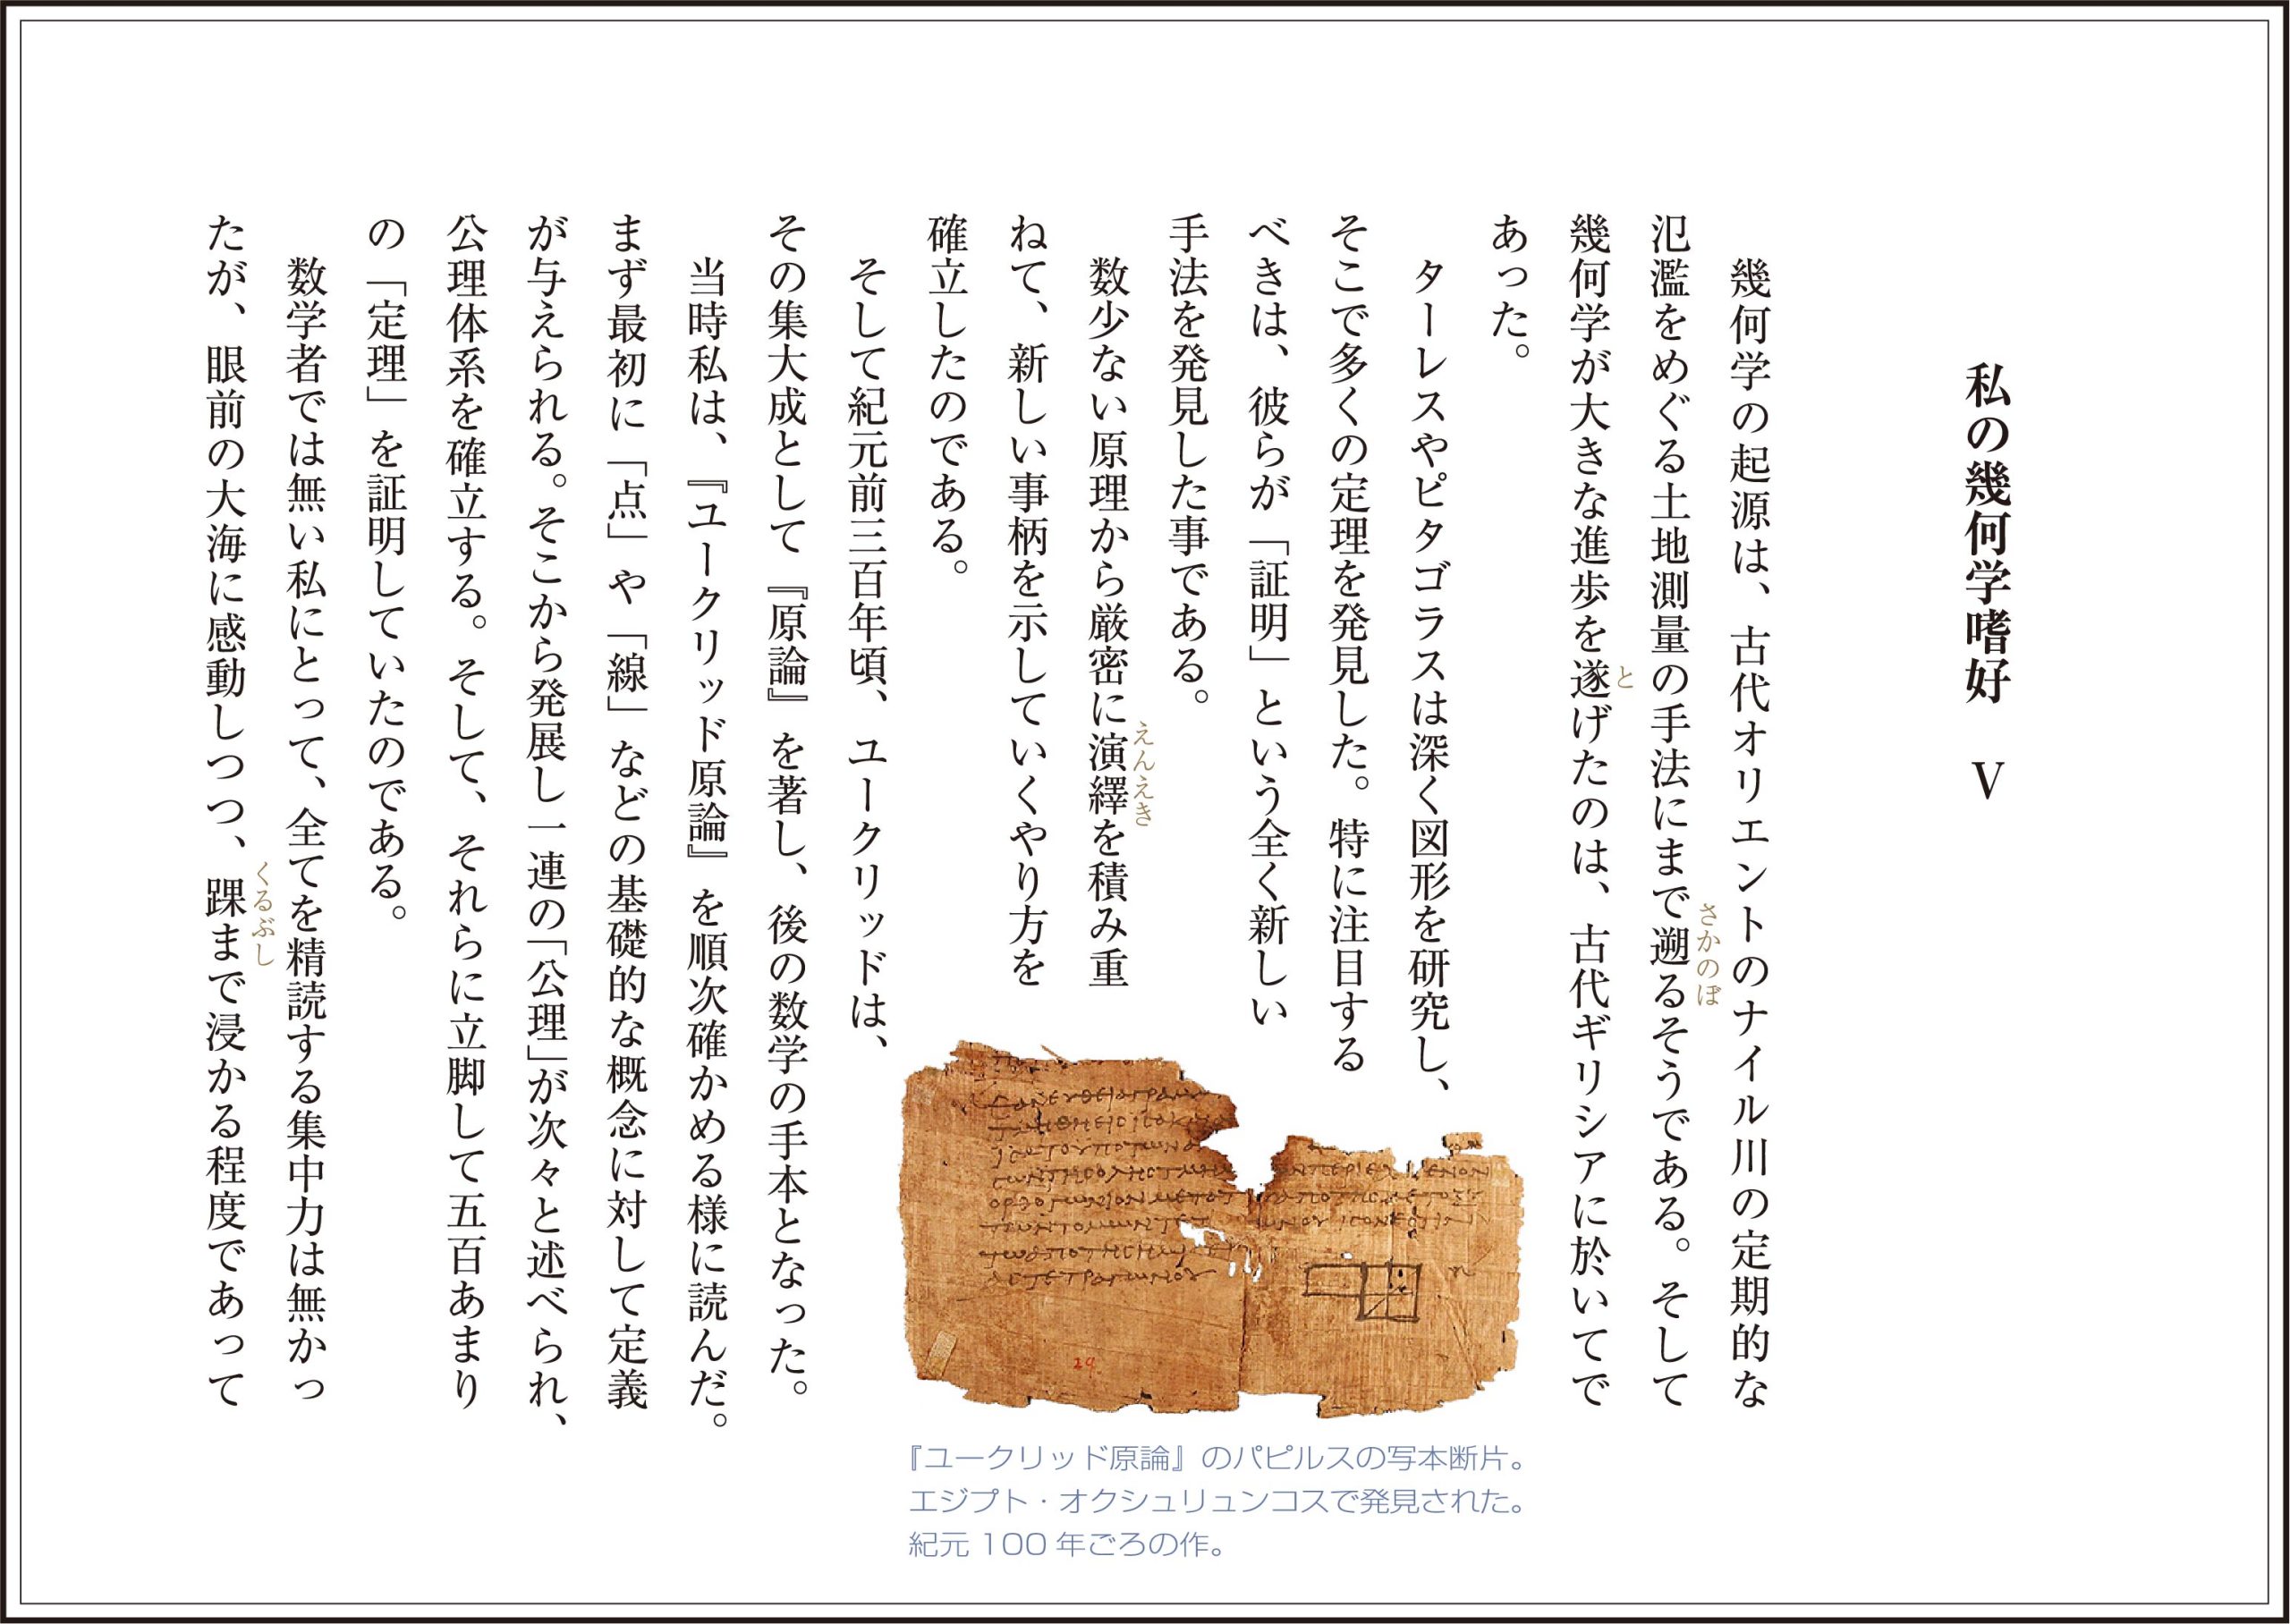 私の幾何学嗜好 V
幾何学の起源は、古代オリエントのナイル川の定期的な
氾濫をめぐる土地測量の手法にまで遡るそうである。そして
さかのぼ
幾何学が大きな進歩を遂げたのは、古代ギリシアに於いてで
と
あった。
ターレスやピタゴラスは深く図形を研究し、
そこで多くの定理を発見した。特に注目する
べきは、彼らが「証明」という全く新しい
手法を発見した事である。
数少ない原理から厳密に演繹を積み重
えんえき
ねて、新しい事柄を示していくやり方を
確立したのである。
そして紀元前三百年頃、ユークリッドは、
その集大成として『原論』を著し、後の数学の手本となった。
当時私は、『ユークリッド原論』を順次確かめる様に読んだ。
まず最初に「点」や「線」などの基礎的な概念に対して定義
が与えられる。そこから発展し一連の「公理」が次々と述べられ、
公理体系を確立する。そして、それらに立脚して五百あまり
の「定理」を証明していたのである。
数学者では無い私にとって、全てを精読する集中力は無かっ
たが、眼前の大海に感動しつつ、踝まで浸かる程度であって
くるぶし
29
『ユークリッド原論』のパピルスの写本断片。
エジプト・オクシュリュンコスで発見された。
紀元 100 年ごろの作。